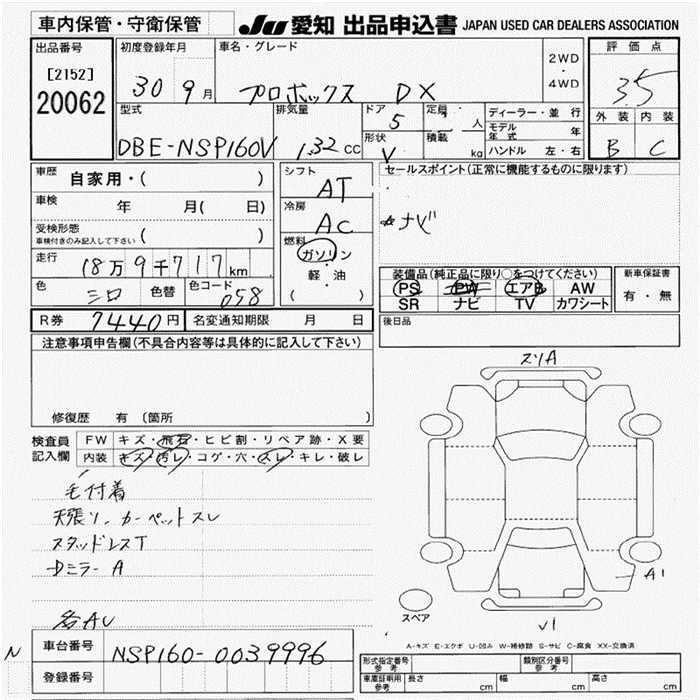 車内保管・守衛保管
JU 愛知 出品申込書 JAPAN USED CAR DEALERS ASSOCIATION
出品番号
[2152]
20062
初度登録年月
30 9月
車名・グレード
プロボックス DX
2WD
・
4WD
評価点
3.5
外装 内装
B C
型式
DBE-NSP160V
排気量
1.32 cc
ドア
5
定員
人
形状
V
積載
kg
ディーラー・並行
モデル年式 年
ハンドル 左・右
車歴
自家用・( )
車検
年 月( 日)
受検形態
車検付きのみ記入して下さい ( )
走行
18万9千717km
色
シロ
色替
色コード
058
シフト
AT
冷房
AC
燃料
ガソリン
・
軽・油
( )
セールスポイント(正常に機能するものに限ります)
☆ナビ
装備品(純正品に限り○をつけてください)
PS PW エアB AW
SR ナビ TV カワシート
新車保証書
有・無
R券 7440円 名変通知期限 月 日
後日品
注意事項申告欄(不具合内容等は具体的に記入して下さい)
修復歴 有 (箇所 )
検査員記入欄
FW キズ・飛石・ヒビ割・リペア跡・X要
内装 キズ・汚レ・コゲ・穴・スレ・キレ・破レ
毛付着
天張リ、カーペットスレ
スタッドレスT
Dミラー A
各AU
スリA
A1
U1
スペア
A-キズ E-エクボ U-凹み W-補修跡 S-サビ C-腐食 XX-交換済
N
車台番号
NSP160-0039996
登録番号
形式指定番号
参考
類別区分番号
参考
車庫証明用
参考
長さ cm 幅 cm 高さ cm